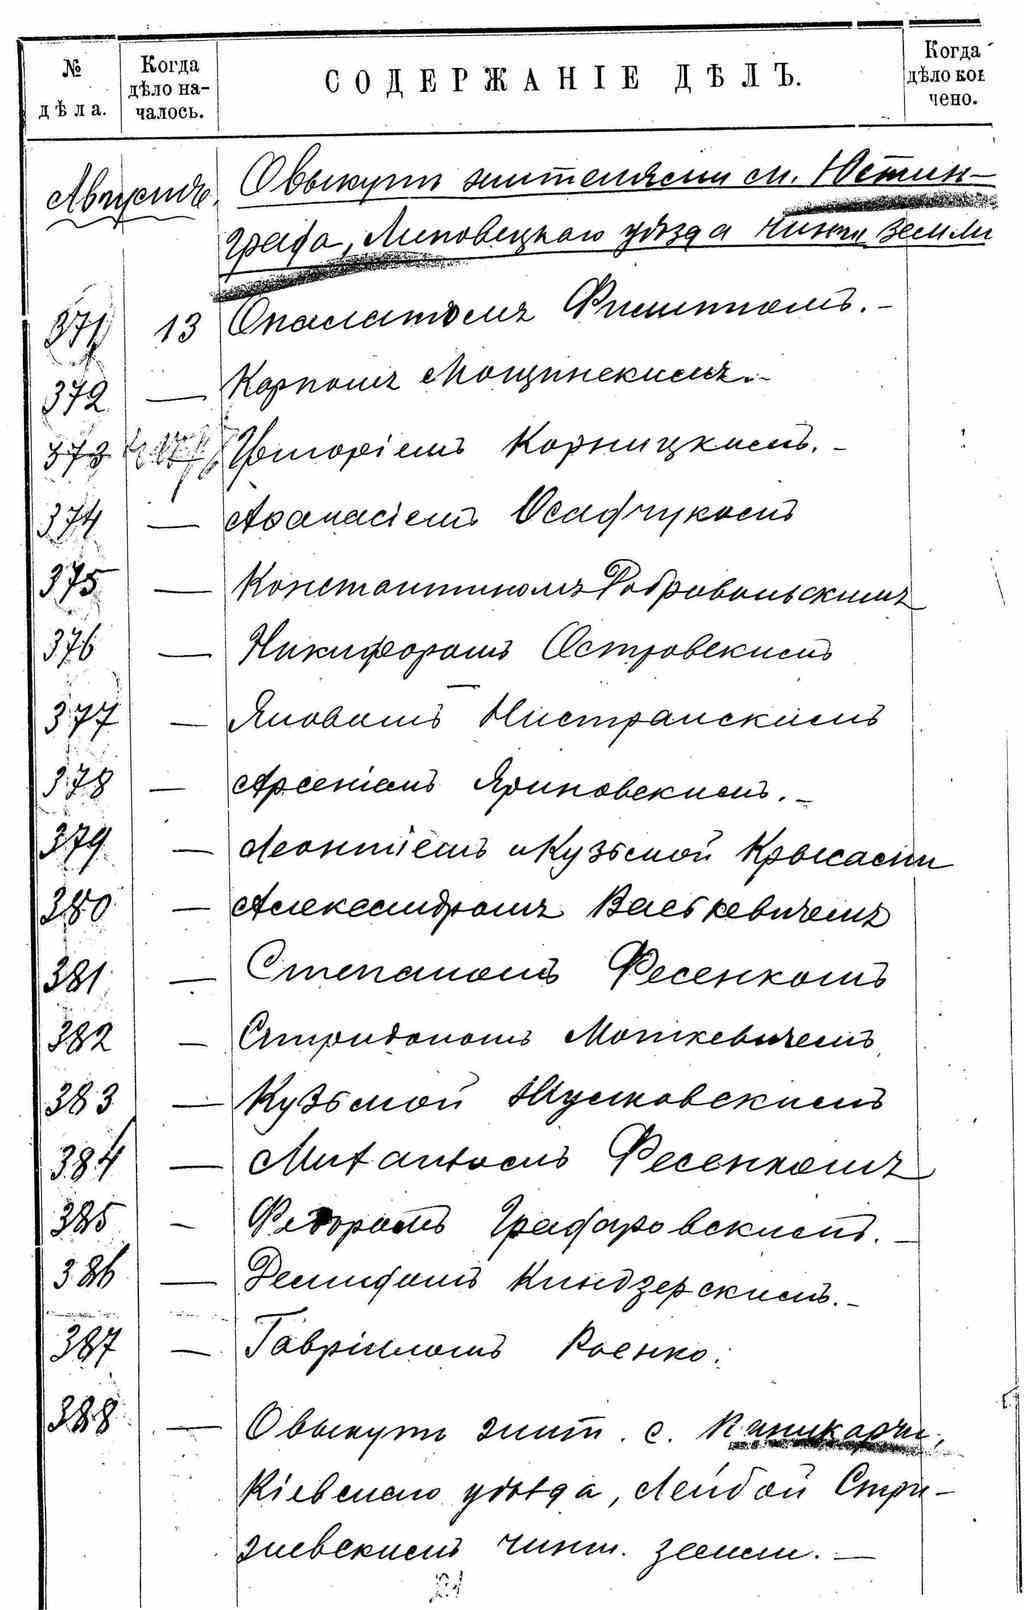 № дѣла.
Когда дѣло началось.
СОДЕРЖАНІЕ ДѢЛЪ.
Когда дѣло кон чено.
Августъ. О выкупѣ жителями м. Юстин-
града, Липовецкаго уѣзда чинш. земли
371 13 Филиппомъ. -
372 — Карпомъ Мощинскимъ. -
373 Григоріемъ Корницкимъ. -
374 — Афанасіемъ Осадчукомъ
375 — Константиномъ Добровольскимъ
376 — Никифоромъ Островскимъ
377 — Яковомъ
378 — Арсеніемъ. -
379 — Леонтіемъ и Кузьмой
380 — Александромъ Васькевичемъ
381 — Степаномъ Фесенкомъ
382 — Спиридономъ Моткевичемъ
383 — Кузьмой Жулковскимъ
384 — Фесенкомъ
385 — Федоромъ. -
386 — Демидомъ Киндзерскимъ. -
387 — Гавріиломъ Роенко.
388 — О выкупѣ жит. с.
Кіевскаго уѣзда, Лейбой Стри-
жевскимъ чинш. земли. —